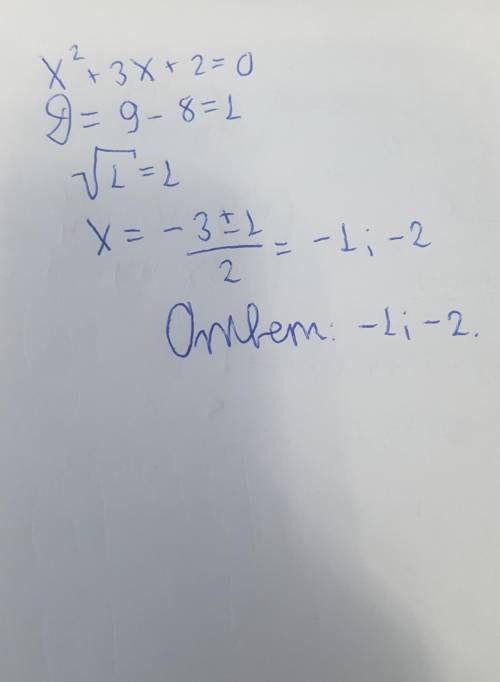 x² + 3x + 2 = 0
D = 9 - 8 = 1
√1 = 1
x = -3 ± 1 / 2 = -1; -2
Ответ: -1; -2.